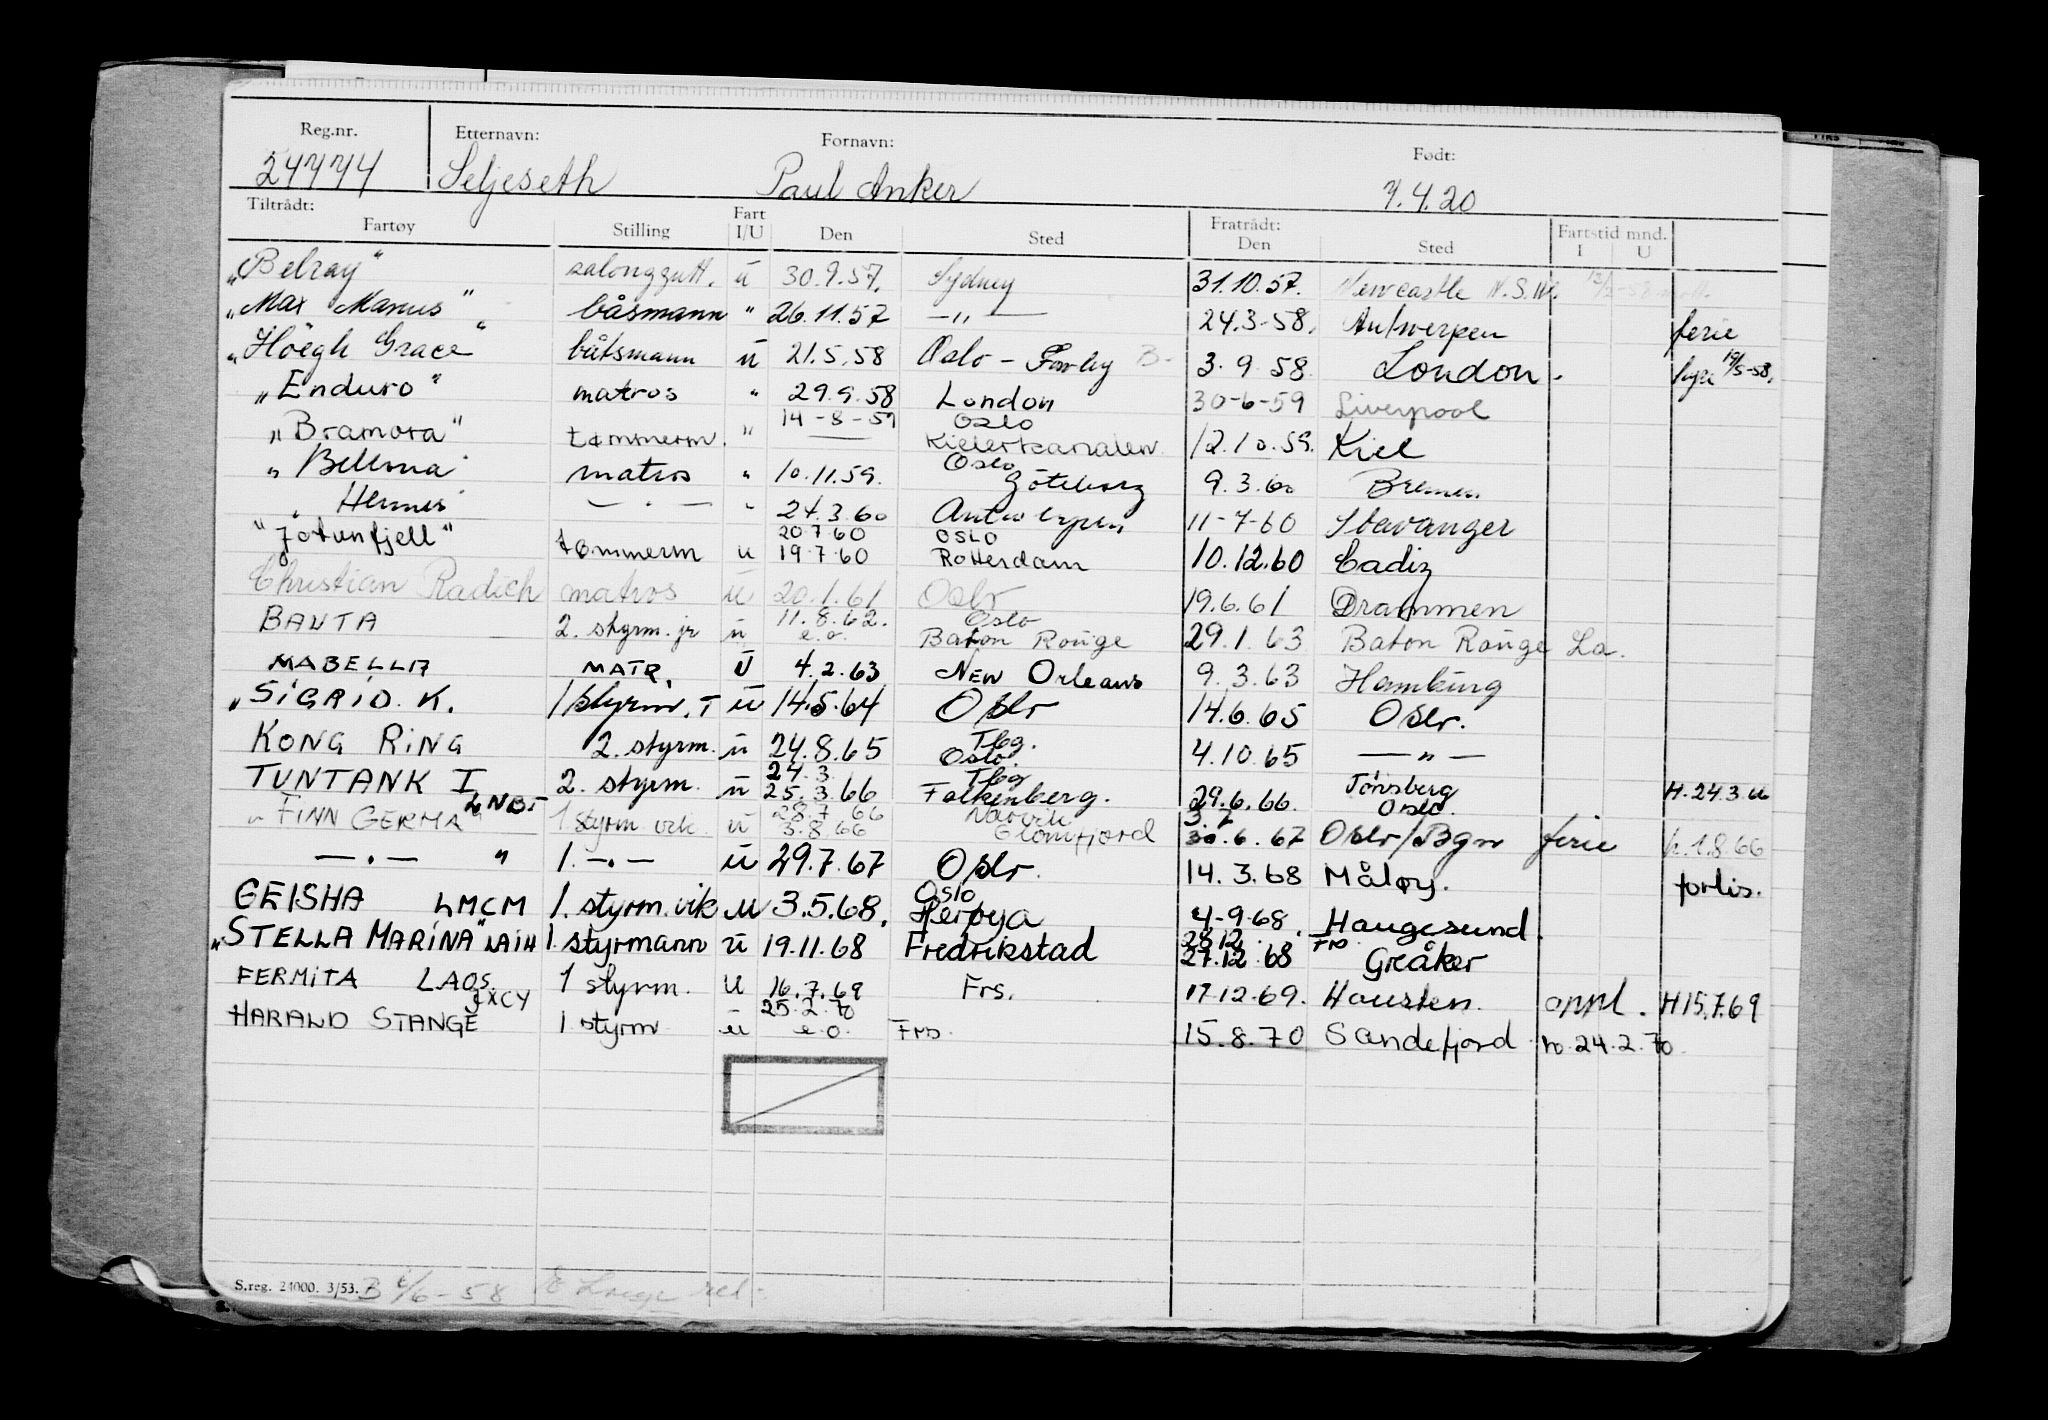 Reg.nr. Etternavn: Fornavn: Født:
24774 Seljeseth Paul Anker 7.4.20
Tiltrådt: Fart Fratrådt: Fartstid mnd.
Fartøy Stilling I/U Den Sted Den Sted I U
"Belray" salonggutt. ü 30.9.57. Sydney 31.10.57. Newcastle N.S.W.
"Max Manus" båsmann " 26.11.57 —"— 24.3-58. Antwerpen ferie
"Höegh Grace" båtsmann ü 21.5.58 Oslo - 3.9.58. London. 19/5-58.
"Enduro" matros " 29.9.58 London 30-6-59 Liverpool
14-8-59 Oslo
"Bramora" tømmerm. " — Kielerkanalen 12.10.59. Kiel
"Bellona" matros " 10.11.59. Oslo Göteborg 9.3.60 Bremen.
"Hermes" —"— " 24.3.60 Antwerpen 11-7-60 Stavanger
20.7.60 OSLO
"Jotunfjell" tømmerm u 19.7.60 Rotterdam 10.12.60 Cadiz
Christian Radich matros ü 20.1.61 Oslo 19.6.61 Drammen
11.8.62. Oslo
BANTA 2. styrm. jr ü e.o. Baton Rouge 29.1.63 Baton Rouge La.
MABELLA MATR. U 4.2.63 New Orleans 9.3.63 Hamburg
"SIGRID K. 1 styrm. T ü 14.5.64 Oslo 14.6.65 Oslo.
KONG RING 2. styrm. ü 24.8.65 Tbg. Oslo. 4.10.65 —"—
24.3. Tbg
TUNTANK I 2. styrm. ü 25.3.66 Falkenberg. 29.6.66. Tönsberg H.24.3.66
LNBF 28.7.66 Narvik 3.7 Oslo
"FINN GERMA" 1 styrm vik. ü 3.8.66 Glomfjord 30.6.67 Oslo/Bgn ferie h.1.8.66
—"— " 1.—"— ü 29.7.67 Oslo. 14.3.68 Måløy. forlis.
Oslo
GEISHA LMCM 1. styrm. vik u 3.5.68. Herøya 4-9-68. Haugesund.
28.12. FRD
"STELLA MARINA" LAIH 1. styrmann ü 19.11.68 Fredrikstad 27.12.68 Greåker
FERMITA LAOS. 1 styrm. U 16.7.69 Frs. 17.12.69. Housten. oppl. H15.7.69
JXCY 25.2.70
HARALD STANGE 1 styrm ü e.o. 15.8.70 Sandefjord ho.24.2.70.
S.reg. 24000. 3/53. B 6/6-58